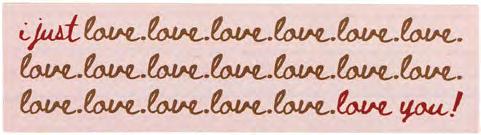 i just love.love.love.love.love.love.
love.love.love.love.love.love.love.
love.love.love.love.love.love you!